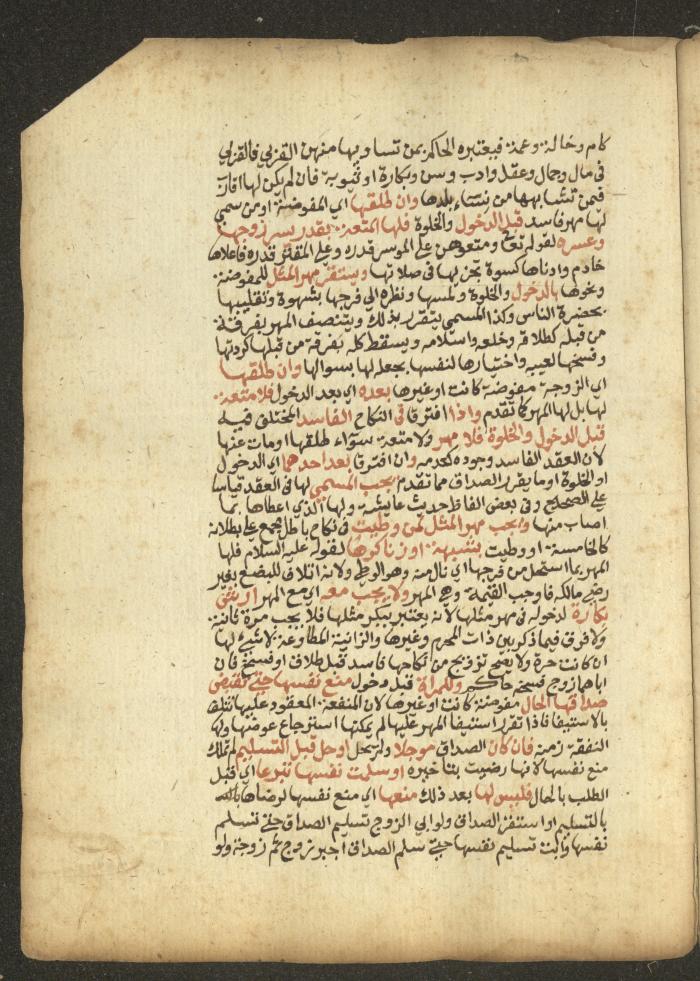 كام وخالة وعمة فيعتبره الحاكم بمن تساويها منهن القربى فالقربى
في مال وجمال وعقل وادب وسن وبكارة او ثيوبة فان لم يكن لها اقارب
فبمن تشابهها من نساء بلدها وان طلقها اي المفوضة او من سمي
لها مهر فاسد قبل الدخول والخلوة فلها المتعة بقدر يسر زوجها
وعسره لقوله تعالى ومتعوهن على الموسع قدره وعلى المقتر قدره فاعلاها
خادم وادناها كسوة تجزيها في صلاتها ويستقر مهر المثل للمفوضة
ونحوها بالدخول والخلوة ولمسها ونظره الى فرجها بشهوة وتقبيلها
بحضرة الناس وكذا المسمى يتقرر بذلك ويتنصف المهر بفرقة
من قبله كطلاقه وخلعه واسلامه ويسقط كله بفرقة من قبلها كردتها
وفسخها لعيبه واختيارها لنفسها بجعله لها بسوالها وان طلقها
اي الزوجة مفوضة كانت او غيرها بعده اي بعد الدخول فلا متعة
لها بل لها المهر كما تقدم واذا افترقا في النكاح الفاسد المختلف فيه
قبل الدخول والخلوة فلا مهر ولا متعة سواء طلقها او مات عنها
لان العقد الفاسد وجوده كعدمه وان افترقا بعد احدهما اي الدخول
او الخلوة او ما يقرر الصداق مما تقدم يجب المسمى لها في العقد قياسا
على الصحيح وفي بعض الفاظ حديث عايشة ولها الذي اعطاها بما
اصاب منها ويجب مهر المثل لمن وطيت في نكاح باطل مجمع على بطلانه
كالخامسة او وطيت بشبهة او زنا كرها لقوله عليه السلام فلها
المهر بما استحل من فرجها اي نال منه وهو الوطي ولانه اتلاف للبضع بغير
رضى مالكه فاوجب القيمة وهي المهر ولا يجب معه اي مع المهر ارش
بكارة لدخوله في مهر مثلها لانه يعتبر ببكر مثلها فلا يجب مرة ثانية
ولا فرق فيما ذكر بين ذات المحرم وغيرها والزانية المطاوعة لا شيء لها
ان كانت حرة ولا يصح تزويج من نكاحها فاسد قبل طلاق او فسخ فان
اباهما زوج فسخه حاكم وللمراة قبل دخول منع نفسها حتى تقبض
صداقها الحال مفوضة كانت او غيرها لان المنفعة المعقود عليها تتلف
بالاستيفا فاذا تعذر استيفا المهر عليها لم يمكنها استرجاع عوضها ولها
النفقة زمنه فان كان الصداق موجلا ولم يحل او حل قبل التسليم لم تملك
منع نفسها لانها رضيت بتاخيره او سلمت نفسها تبرعا اي قبل
الطلب بالحال فليس لها بعد ذلك منعها اي منع نفسها لرضاها
بالتسليم او استقر الصداق ولو ابى الزوج تسليم الصداق حتى تسلم
نفسها وابت تسليم نفسها حتى يسلم الصداق اجبر زوج ثم زوجة ولو